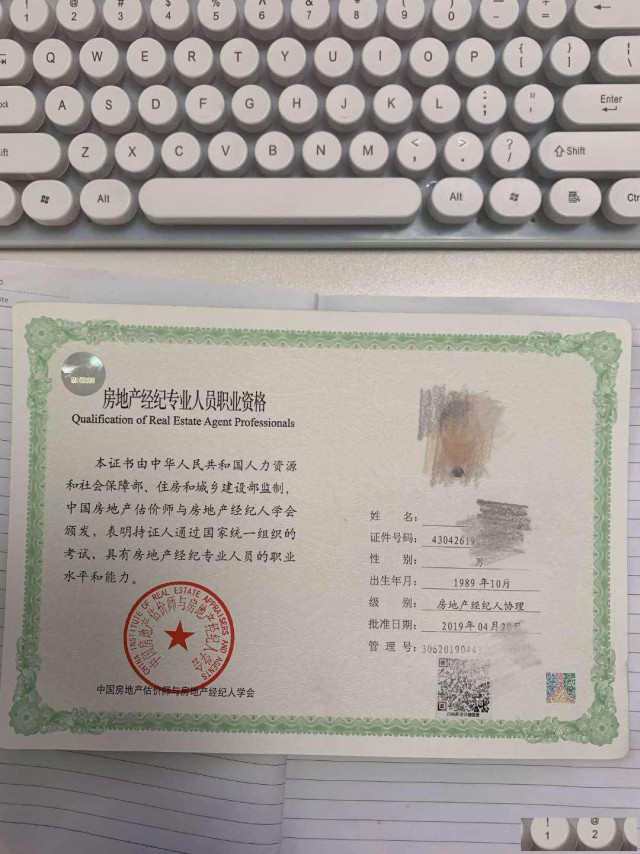 ! 1 @ 2 # 3 $ 4 % 5 ^ 6 & 7 * 8 ( 9 ) 0 _ - + = ←
Q W E R T Y U I O P { [ } ] | \
A S D F G H J K L : ; " ' Enter
Z X C V B N M < , > . ? / ⇧ Shift
Alt Alt Ctr
房地产经纪专业人员职业资格
Qualification of Real Estate Agent Professionals
本证书由中华人民共和国人力资源
和社会保障部、住房和城乡建设部监制,
中国房地产估价师与房地产经纪人学会
颁发,表明持证人通过国家统一组织的
考试,具有房地产经纪专业人员的职业
水平和能力。
CHINA INSTITUTE OF REAL ESTATE APPRAISERS AND AGENTS
中国房地产估价师与房地产经纪人学会
中国房地产估价师与房地产经纪人学会
姓 名:
证件号码: 43042619
性 别: 男
出生年月: 1989年10月
级 别: 房地产经纪人协理
批准日期: 2019年04月20日
管 理 号: 3062019044
! 1 @ 2